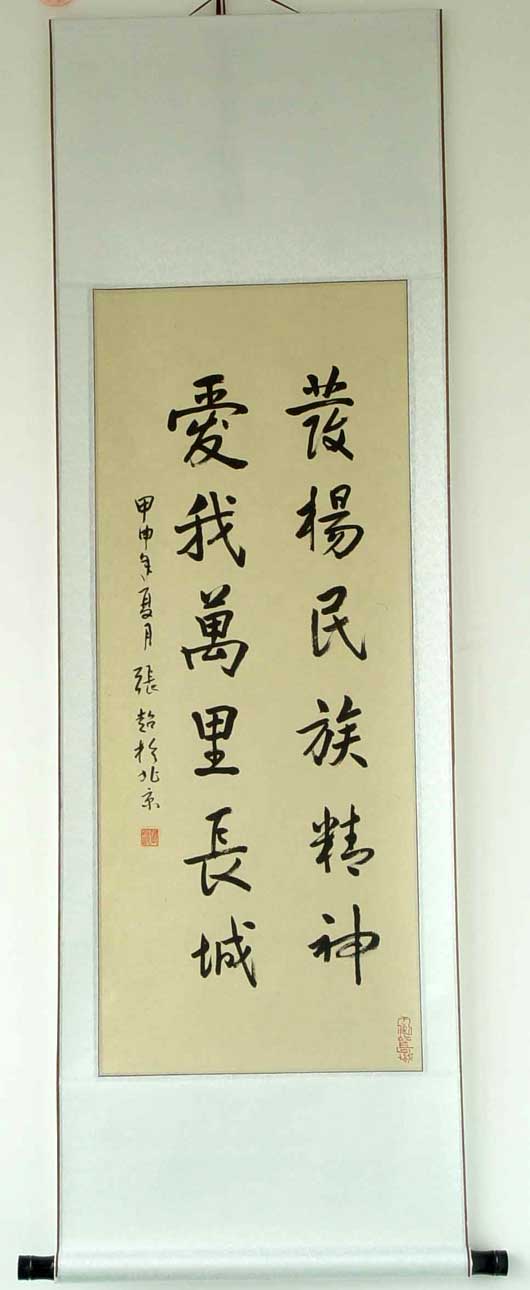 發楊民族精神
愛我萬里長城
甲申年夏月 張超於北京